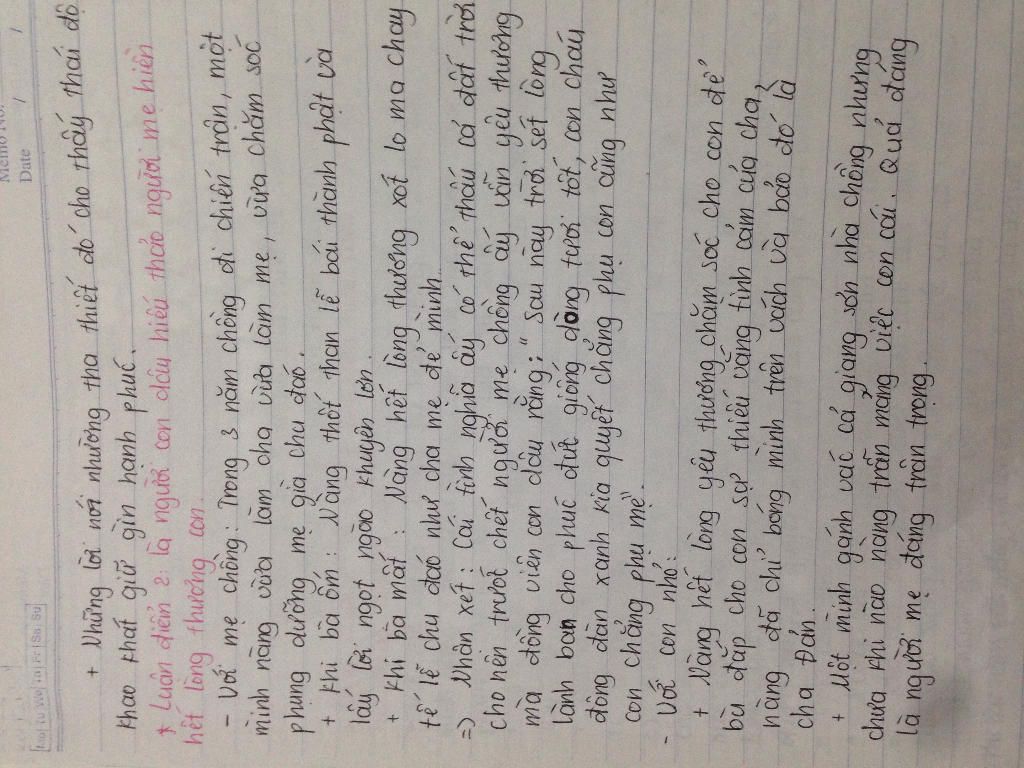 Memo No.
Date / /
Mo Tu We Th Fr Sa Su
+ Những lời nói nhường tha thiết đó cho thấy thái độ
khao khát giữ gìn hạnh phúc.
* Luận điểm 2: là người con dâu hiếu thảo người mẹ hiền
hết lòng thương con.
- Với mẹ chồng: Trong 3 năm chồng đi chiến trận, một
mình nàng vừa làm cha vừa làm mẹ, vừa chăm sóc
phụng dưỡng mẹ già chu đáo.
+ Khi bà ốm: Nàng thốt than lễ bái thành phật và
lấy lời ngọt ngào khuyên lơn.
+ Khi bà mất: Nàng hết lòng thương xót lo ma chay
tế lễ chu đáo như cha mẹ đẻ mình.
=> Nhân xét: Cái tình nghĩa ấy có thể thấu cả đất trời
cho nên trước chết người mẹ chồng ấy vẫn yêu thương
mà động viên con dâu rằng: " Sau này trời sét lòng
lành ban cho phúc đức giống dòng tươi tốt, con cháu
đông đàn xanh kia quyết chẳng phụ con cũng như
con chẳng phụ mẹ".
- Với con nhỏ:
+ Nàng hết lòng yêu thương chăm sóc cho con để
bù đắp cho con sự thiếu vắng tình cảm của cha,
nàng đã chỉ bóng mình trên vách và bảo đó là
cha Đản.
+ Một mình gánh vác cả giang sơn nhà chồng nhưng
chưa khi nào nàng trễ mảng việc con cái. Quả đáng
là người mẹ đáng trân trọng.